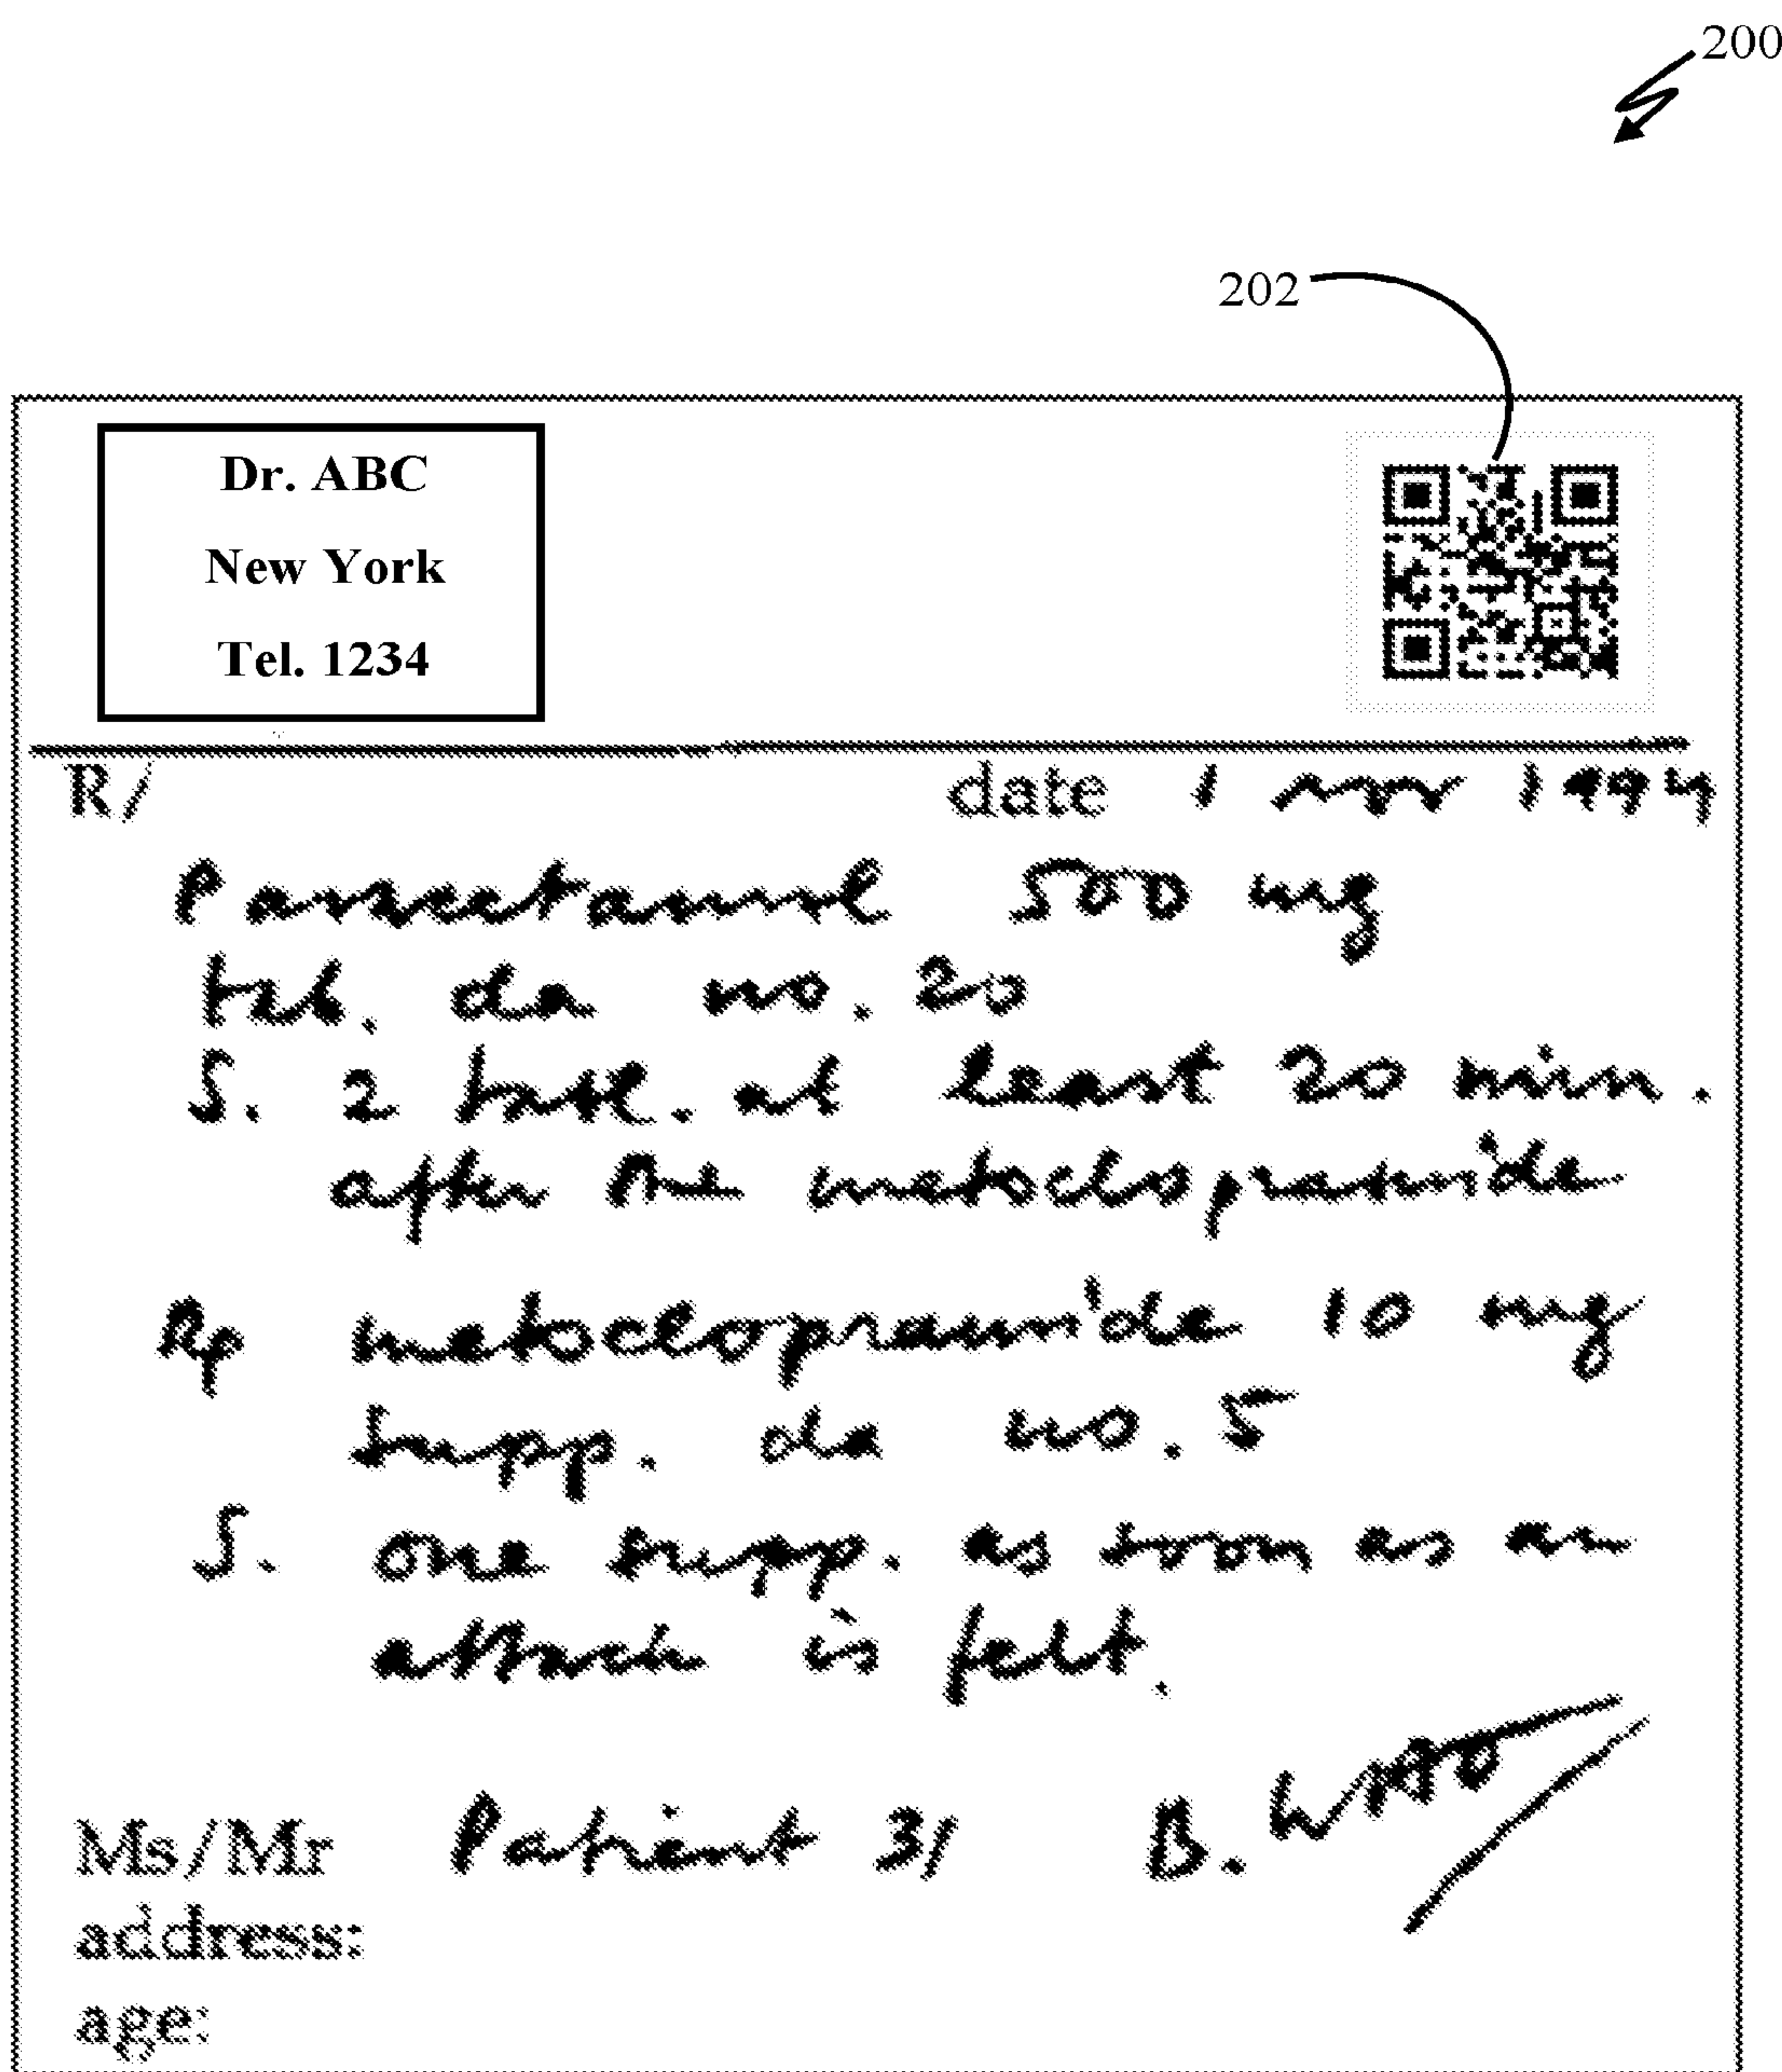 200
202
Dr. ABC
New York
Tel. 1234
R/ date 1 nov 1994
Paracetamol 500 mg
tab. da no. 20
S. 2 tabl. at least 20 min.
after the metoclopramide
Rp metoclopramide 10 mg
supp. da no. 5
S. one supp. as soon as an
attack is felt.
Ms/Mr Patient 31 B. WHO
address:
age: